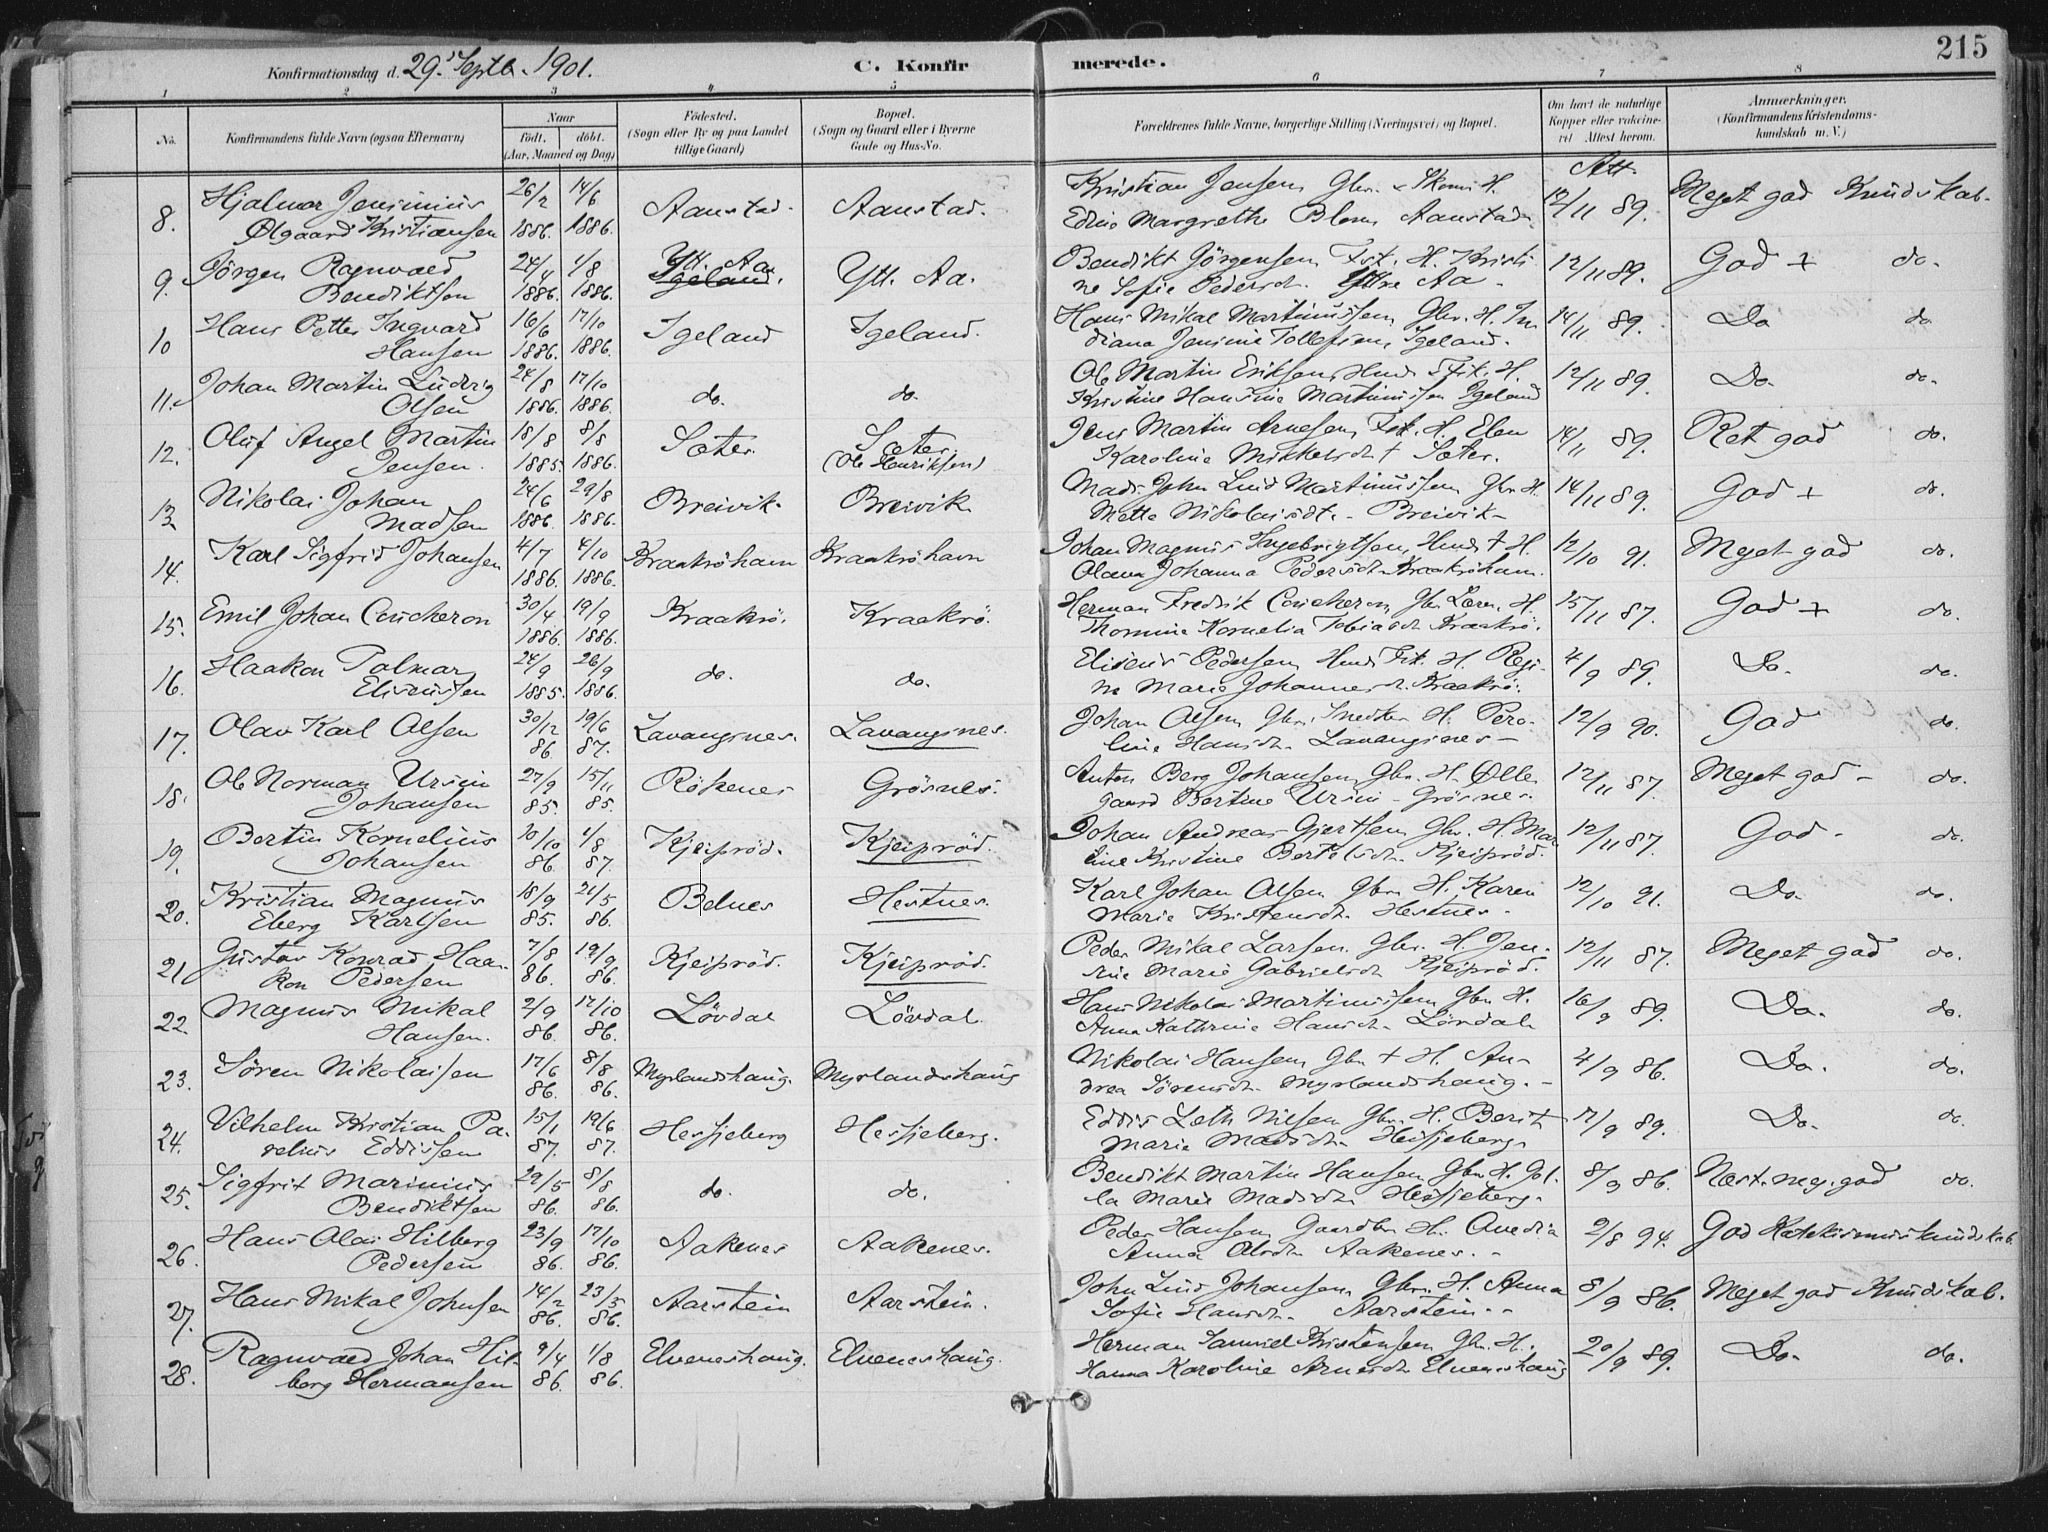 215
Konfirmationsdag d. 29. Septb. 1901. C. Konfirmerede.
1 2 3 4 5 6 7 8
No. Konfirmandens fulde Navn (ogsaa Efternavn) Naar födt. döbt. (Aar, Maaned og Dag) Födested. (Sogn eller By og paa Landet tillige Gaard) Bopæl. (Sogn og Gaard eller i Byerne Gade og Hus-No. Forældrenes fulde Navne, borgerlige Stilling (Næringsvei) og Bopæl. Om havt de naturlige Kopper eller vakcineret il. Attest herom. Anmærkninger. (Konfirmandens Kristendomskundskab m. V.)
Att.
8. Hjalmar Jensinius 26/2 14/6 Aanstad. Aanstad. Kristian Jensen, Gbr. & Skom. H. 12/11 89. Meget god Kundskab.
Ølgaard Kristiansen 1886. 1886. Edine Margrethe Blom, Aanstad
9. Jörgen Ragnvald 24/4 1/8 Ytt. Aa Ytt. Aa. Bendikt Jörgensen, Fsk. H. Kristi- 12/11 89. God + do.
Bendiktsen 1886. 1886. Igeland. ne Sofie Pedersdt. Yttre Aa
10 Hans Petter Ingvard 16/6 17/10 Igeland Igeland. Hans Mikal Martinussen, Gbr. H. In- 14/11 89. Do do
Hansen 1886. 1886. diana Jensine Tollefsen, Igeland.
11. Johan Martin Ludvig 24/8 17/10 do. do. Ole Martin Eriksen, Hmd. Fsk. H. 12/11 89. Do. do.
Olsen 1886. 1886. Kristine Hansine Martinussen Igeland
12. Oluf Angel Martin 18/8 8/8 Sæter. Sæter. Jens Martin Arnesen, Fsk. H. Elen 14/11 89. Ret god do.
Jensen. 1885. 1886. (Ole Henriksen) Karoline Mikkelsdt + Sæter.
13 Nikolai Johan 24/6 29/8 Breivik. Breivik Mads John Lind Martinussen Gbr. H. 14/11 89. God + do.
Madsen 1886. 1886. Mette Nikolaisdt. - Breivik -
14. Karl Sigfrid Johansen 4/7 4/10 Kraakröhavn Kraakröhavn Johan Magnus Ingebrigtsen, Hmd. + H. 12/10 91. Meget god do.
1886. 1886. Olava Johanna Pedersdt. Kraakröhavn.
15. Emil Johan Coucheron 30/4 19/9 Kraakrö. Kraakrö. Herman Fredrik Coucheron, Gbr. Lærer. H. 15/11 87. God + do.
1886. 1886. Thomine Kornelia Tobiasdt Kraakrö.
16. Haakon Tolmar 24/9 26/9 do. do. Eliseus Pedersen, Hmd. Fsk. H. Regi- 4/9 89. Do. do.
Eliseussen 1885. 1886. ne Marie Johannesdt. Kraakrö.
17. Olav Karl Olsen 30/12 19/6 Lavangsnes. Lavangsnes. Johan Olsen, Gbr. Snedker H. Pero- 12/9 90. God do.
86 87. line Hansdt. Lavangsnes -
18. Ole Norman Ursin 27/9 15/11 Rökenes Grösnes. Anton Berg Johansen, Gbr. H. Ølle- 12/11 87. Meget god - do.
Johansen 85. 85. gaard Bertine Ursin - Grösnes.
19. Bertin Kornelius 10/10 1/8 Kjeiprød. Kjeiprød. Johan Andreas Gjertsen, Gbr. H. Mar- 12/11 87. God - do.
Johansen 86. 87. Kristine Bertelsdt. Kjeiprød.
20. Kristian Magnus 18/9 21/5 Belnes Hestnes. Karl Johan Olsen, Gbr. H. Karen 12/10 91. Do. do.
Eberg Karlsen 85. 86. Marie Kristensdt. Hestnes.
21 Gustav Konrad Haa- 7/8 19/9 Kjeiprød. Kjeiprød. Peder Mikal Larsen. Gbr. H. Jen- 12/11 87. Meget god do.
kon Pedersen 86. 86. sine Marie Gabrielsdt. Kjeiprød.
22. Magnus Mikal 2/9 17/10 Lövdal Lövdal. Hans Nikolai Martinussen, Gbr. H. 16/9 89. Do. do.
Hansen. 86. 86. Anna Kathrine Hansdt. Lövdal
23. Sören Nikolaisen 17/6 8/8 Myrlandshaug. Myrlandshaug Nikolai Hansen, Gbr. + H. An- 4/9 86. Do. do.
86. 86. drea Sörensdt. Myrlandshaug. -
24. Vilhelm Kristian Pa- 15/1 19/6 Hesjeberg Hesjeberg. Eddis Leth Nilsen, Gbr. H. Berit 17/9 89. Do. do.
relius Eddissen 87. 87. Marie Madsdt. Hesjeberg.
25. Sigfrit Marinius 29/5 8/8 do. do. Bendikt Martin Hansen, Gbr. H. Jul- 8/9 86. Næst. meg. god do.
Bendiktsen 86. 86. la Marie Madsdt. Hesjeberg.
26. Hans Olai Hilberg 23/9 17/10 Aakenes Aakenes. Peder Hansen, Gaardbr. H. Anedia 2/8 94. God Katekismuskundskab.
Pedersen 86. 86. Anna Olsdt. Aakenes. -
27. Hans Mikal Johnsen 14/2 23/5 Aarstein Aarstein. John Lind Johansen, Gbr. H. Anna 8/9 86. Meget god Kundskab.
86. 86. Sofie Hansdt. Aarstein. -
28. Ragnvald Johan Hil- 9/4 1/8 Elveneshaug. Elveneshaug. Herman Samuel Kristensen, Gbr. H. 20/9 89. Do. do.
berg Hermansen 86. 86. Hanna Karoline Arnesdt. Elveneshaug